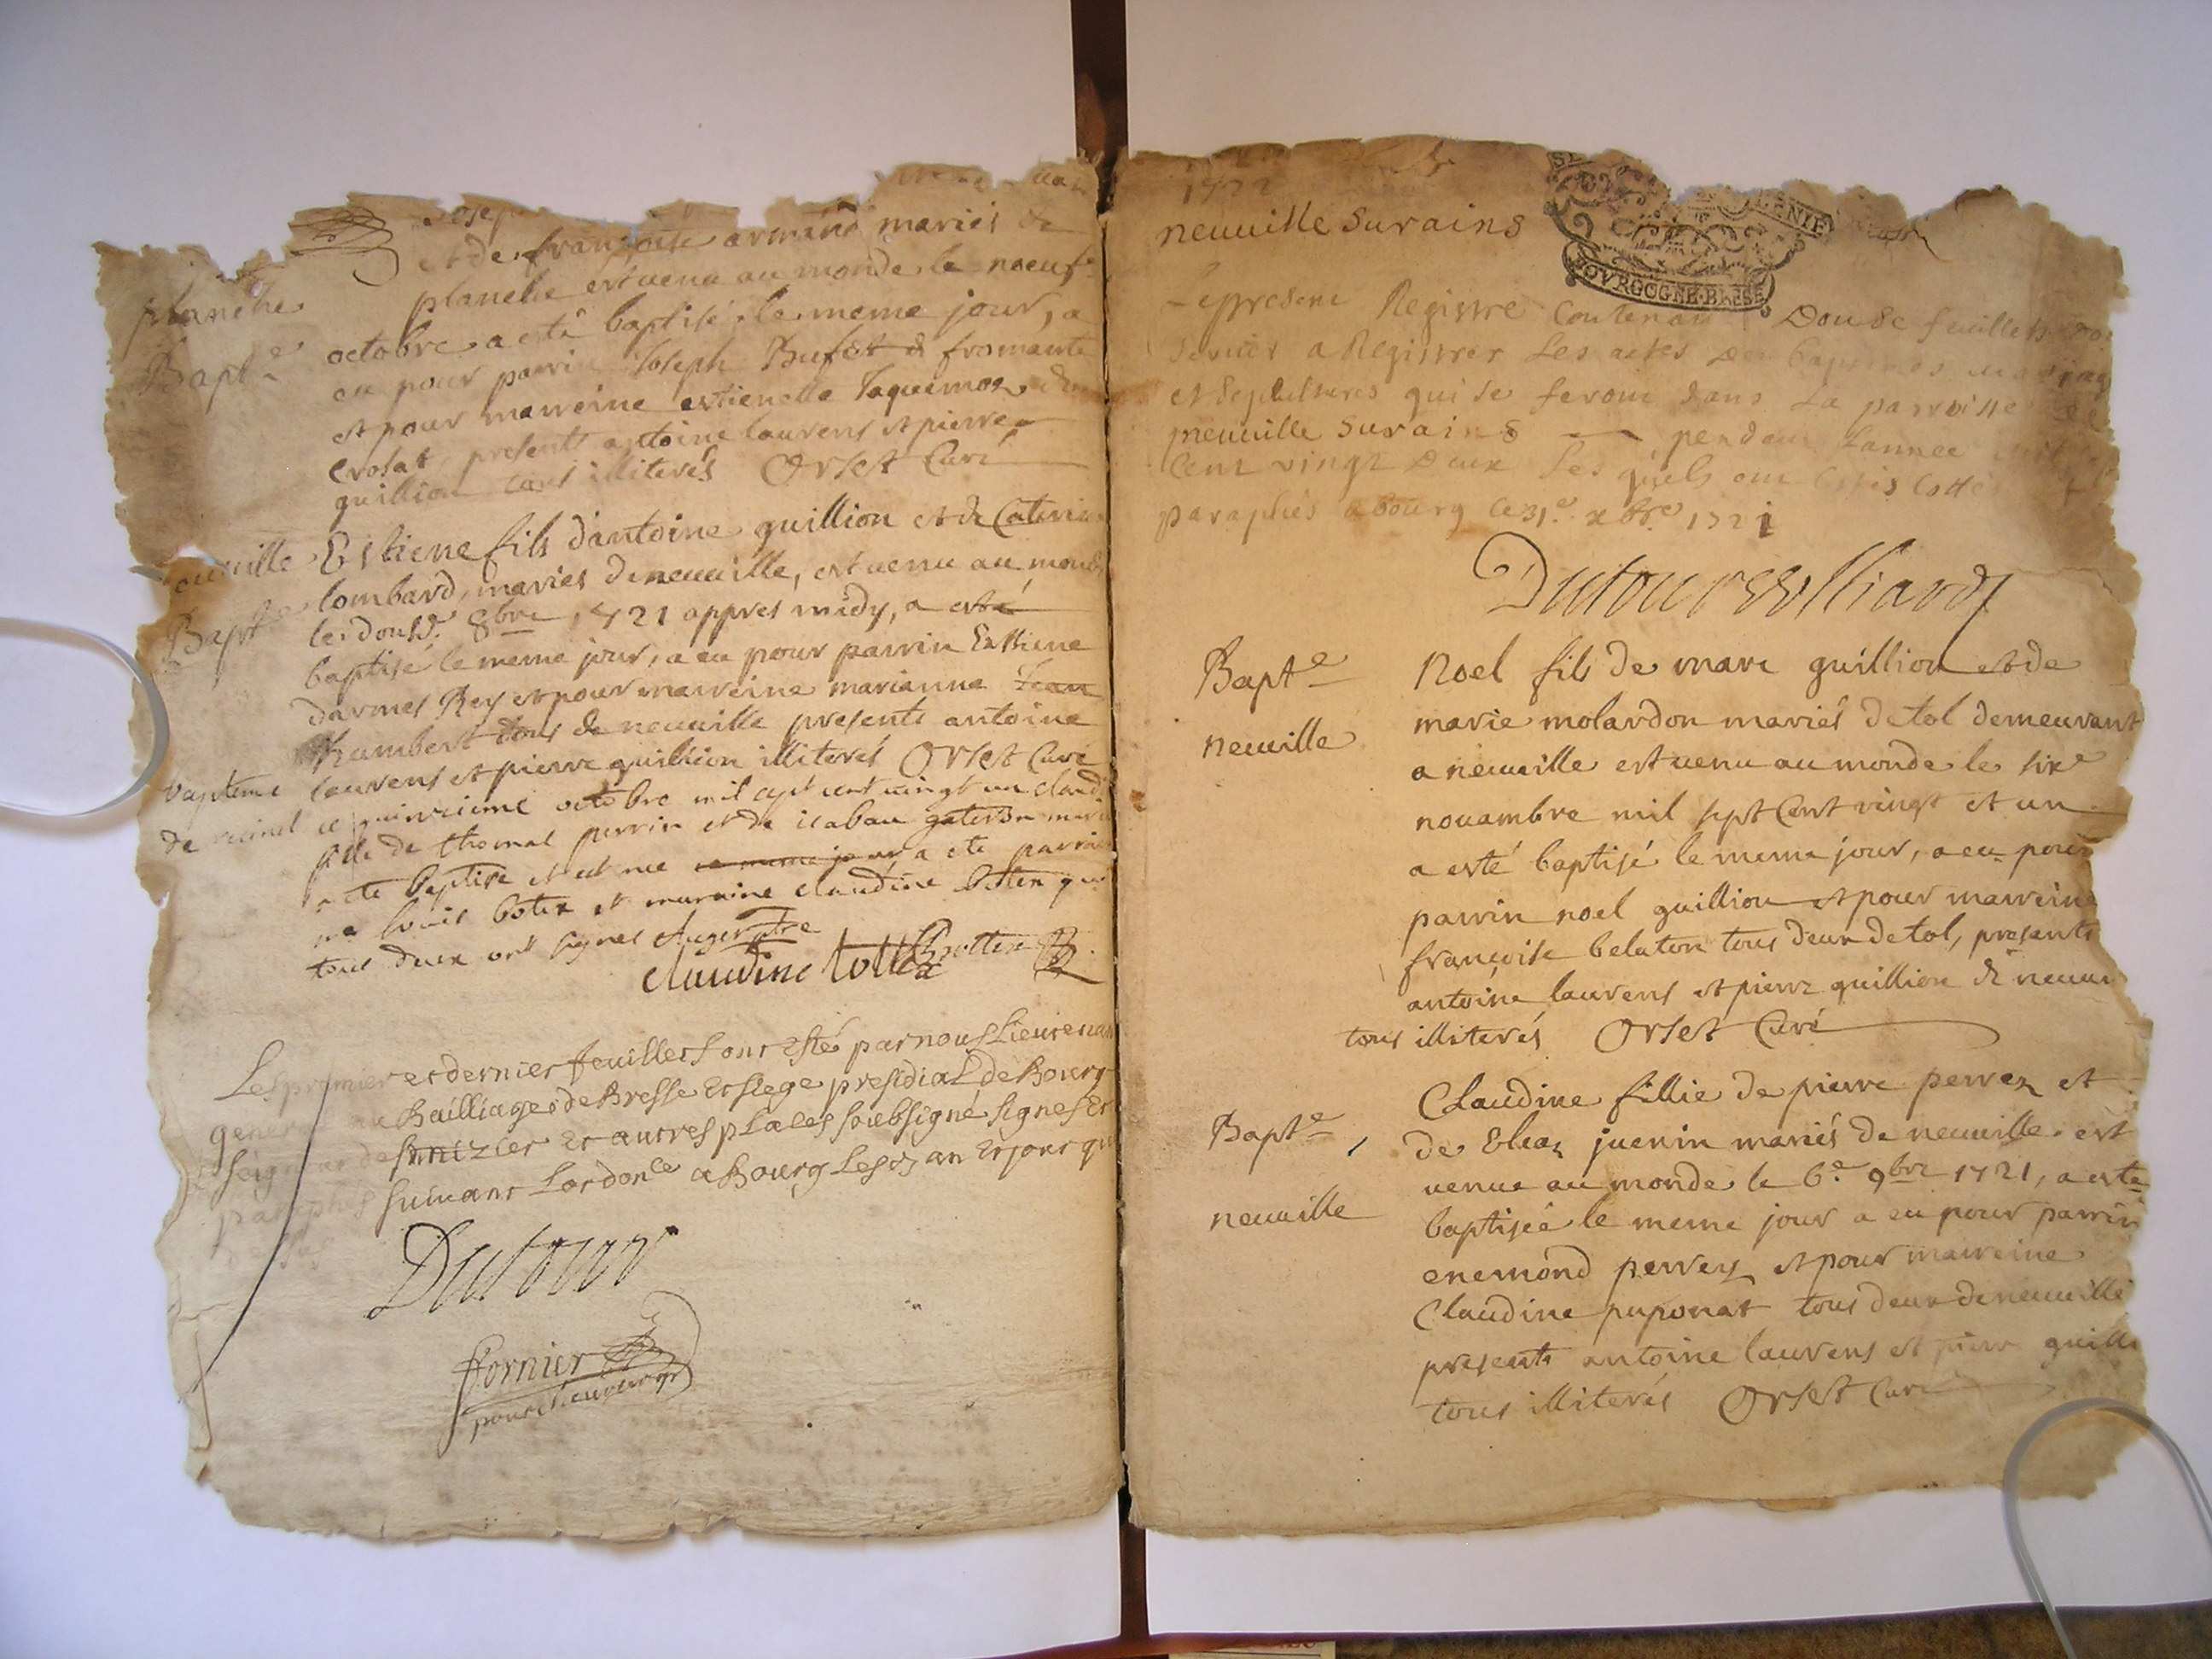 et de françoise armand mariés de
planche
planche est venu au monde le noeuf
Bapt^e
octobre a esté baptisé le meme jour, a
eu pour parrin Joseph Bufet de fromante
et pour marreine estienette Jaquemoz
crosat, presents antoine laurens et pierre
guillion tous illiterés Orset Curé
neuuille
Estiene fils d'antoine guillion et de Caterine
lombard, mariés de neuuille, est uenu au monde
Bapt^e
le douse 8bre 1721 appres midy, a esté
baptisé le meme jour, a eu pour parrin Estiene
darmes Rey et pour marreine marianne Jean
humbert tous de neuuille presents antoine
laurens et pierre guillion illiterés Orset Curé
bapteme
ce quinzieme octobre mil sept cent uingt un claudine
fille de thomas perrin et de isabau
a ete baptise et est nee le meme jour a ete parrain
me louis botex et maraine claudine botex qui
tous deux ont signes
claudine bottex Bottex
Les premier et dernier feuillets ont esté par nous Lieutenant
general au Bailliage de Bresse et siege presidial de Bourg
seigneur de et autres places soubsigné signes et
paraphés suiuant Lordon^ce a Bourg Les an et jour que
dessus
Dutour
fornier
1722
neuuille sur ains
BOVRGOGNE·BRESSE
Le present Registre Contenant Douse feuillets pour
seruir a Registrer Les actes des baptemes mariages
et sepultures qui se feront dans La parroisse de
neuuille sur ains pendant Lannee mil sept
Cent vingt Deux Lesquels ont estés cottés et
paraphés a bourg ce 31^e xbre 1721
Bapt^e
neuuille
Noel fils de marc guillion et de
marie molardon mariés de tol demeurant
a neuuille est uenu au monde le six^e
nouambre mil sept Cent vingt et un
a esté baptisé le meme jour, a eu pour
parrin noel guillion et pour marreine
françoise belaton tous deux de tol, presents
antoine laurens et pierre guillion de neuui
tous illiterés Orset Curé
Bapt^e
neuuille
Claudine fillie de pierre perrez et
de Eleaz juenin mariés de neuuille est
uenue au monde le 6^e 9bre 1721, a esté
baptisée le meme jour a eu pour parrin
enemond perrez et pour marreine
Claudine puponat tous deux de neuuille
presents antoine laurens et pierre guilli
tous illiterés Orset Curé